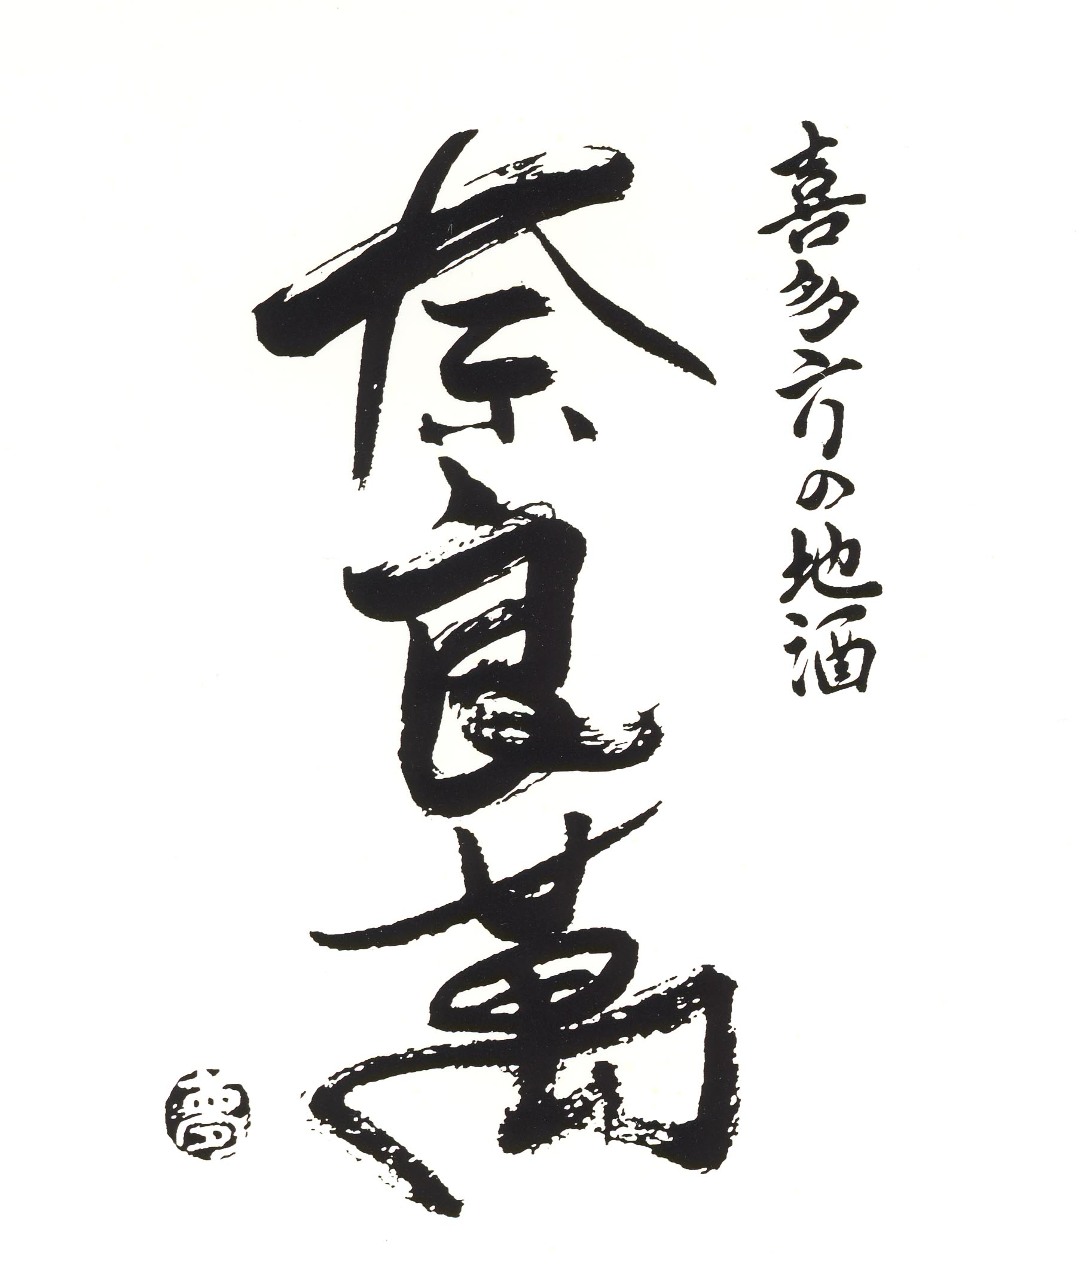 喜多方の地酒
奈良萬